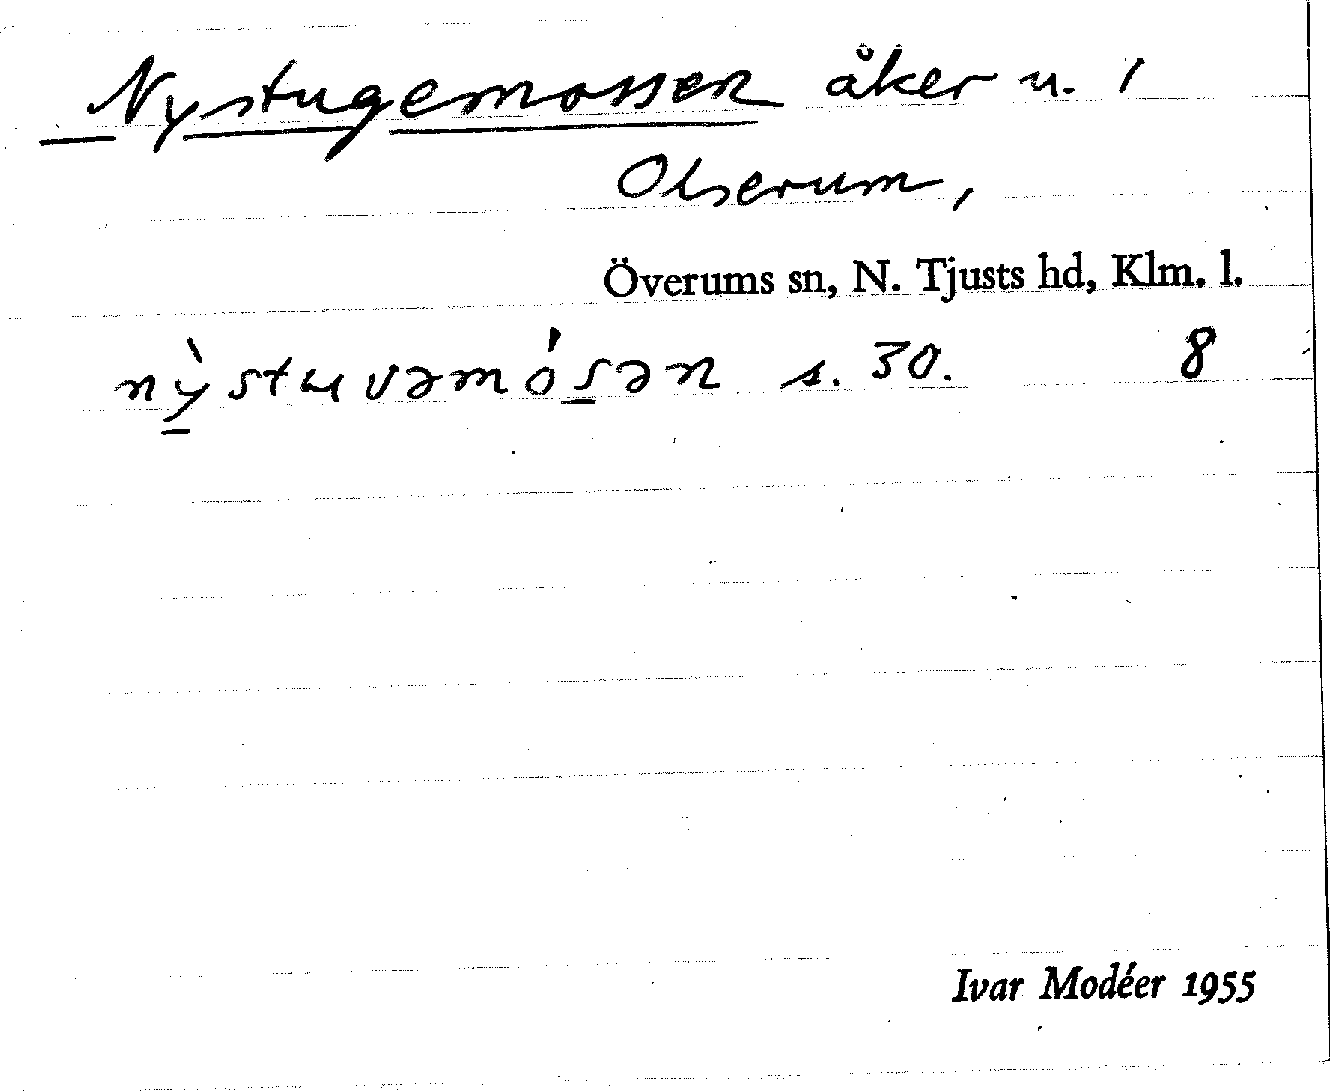 Nystugemossen åker u. 1
Olserum,
Överums sn, N. Tjusts hd, Klm. l.
nỳstuvəmósən s. 30. 8
Ivar Modéer 1955